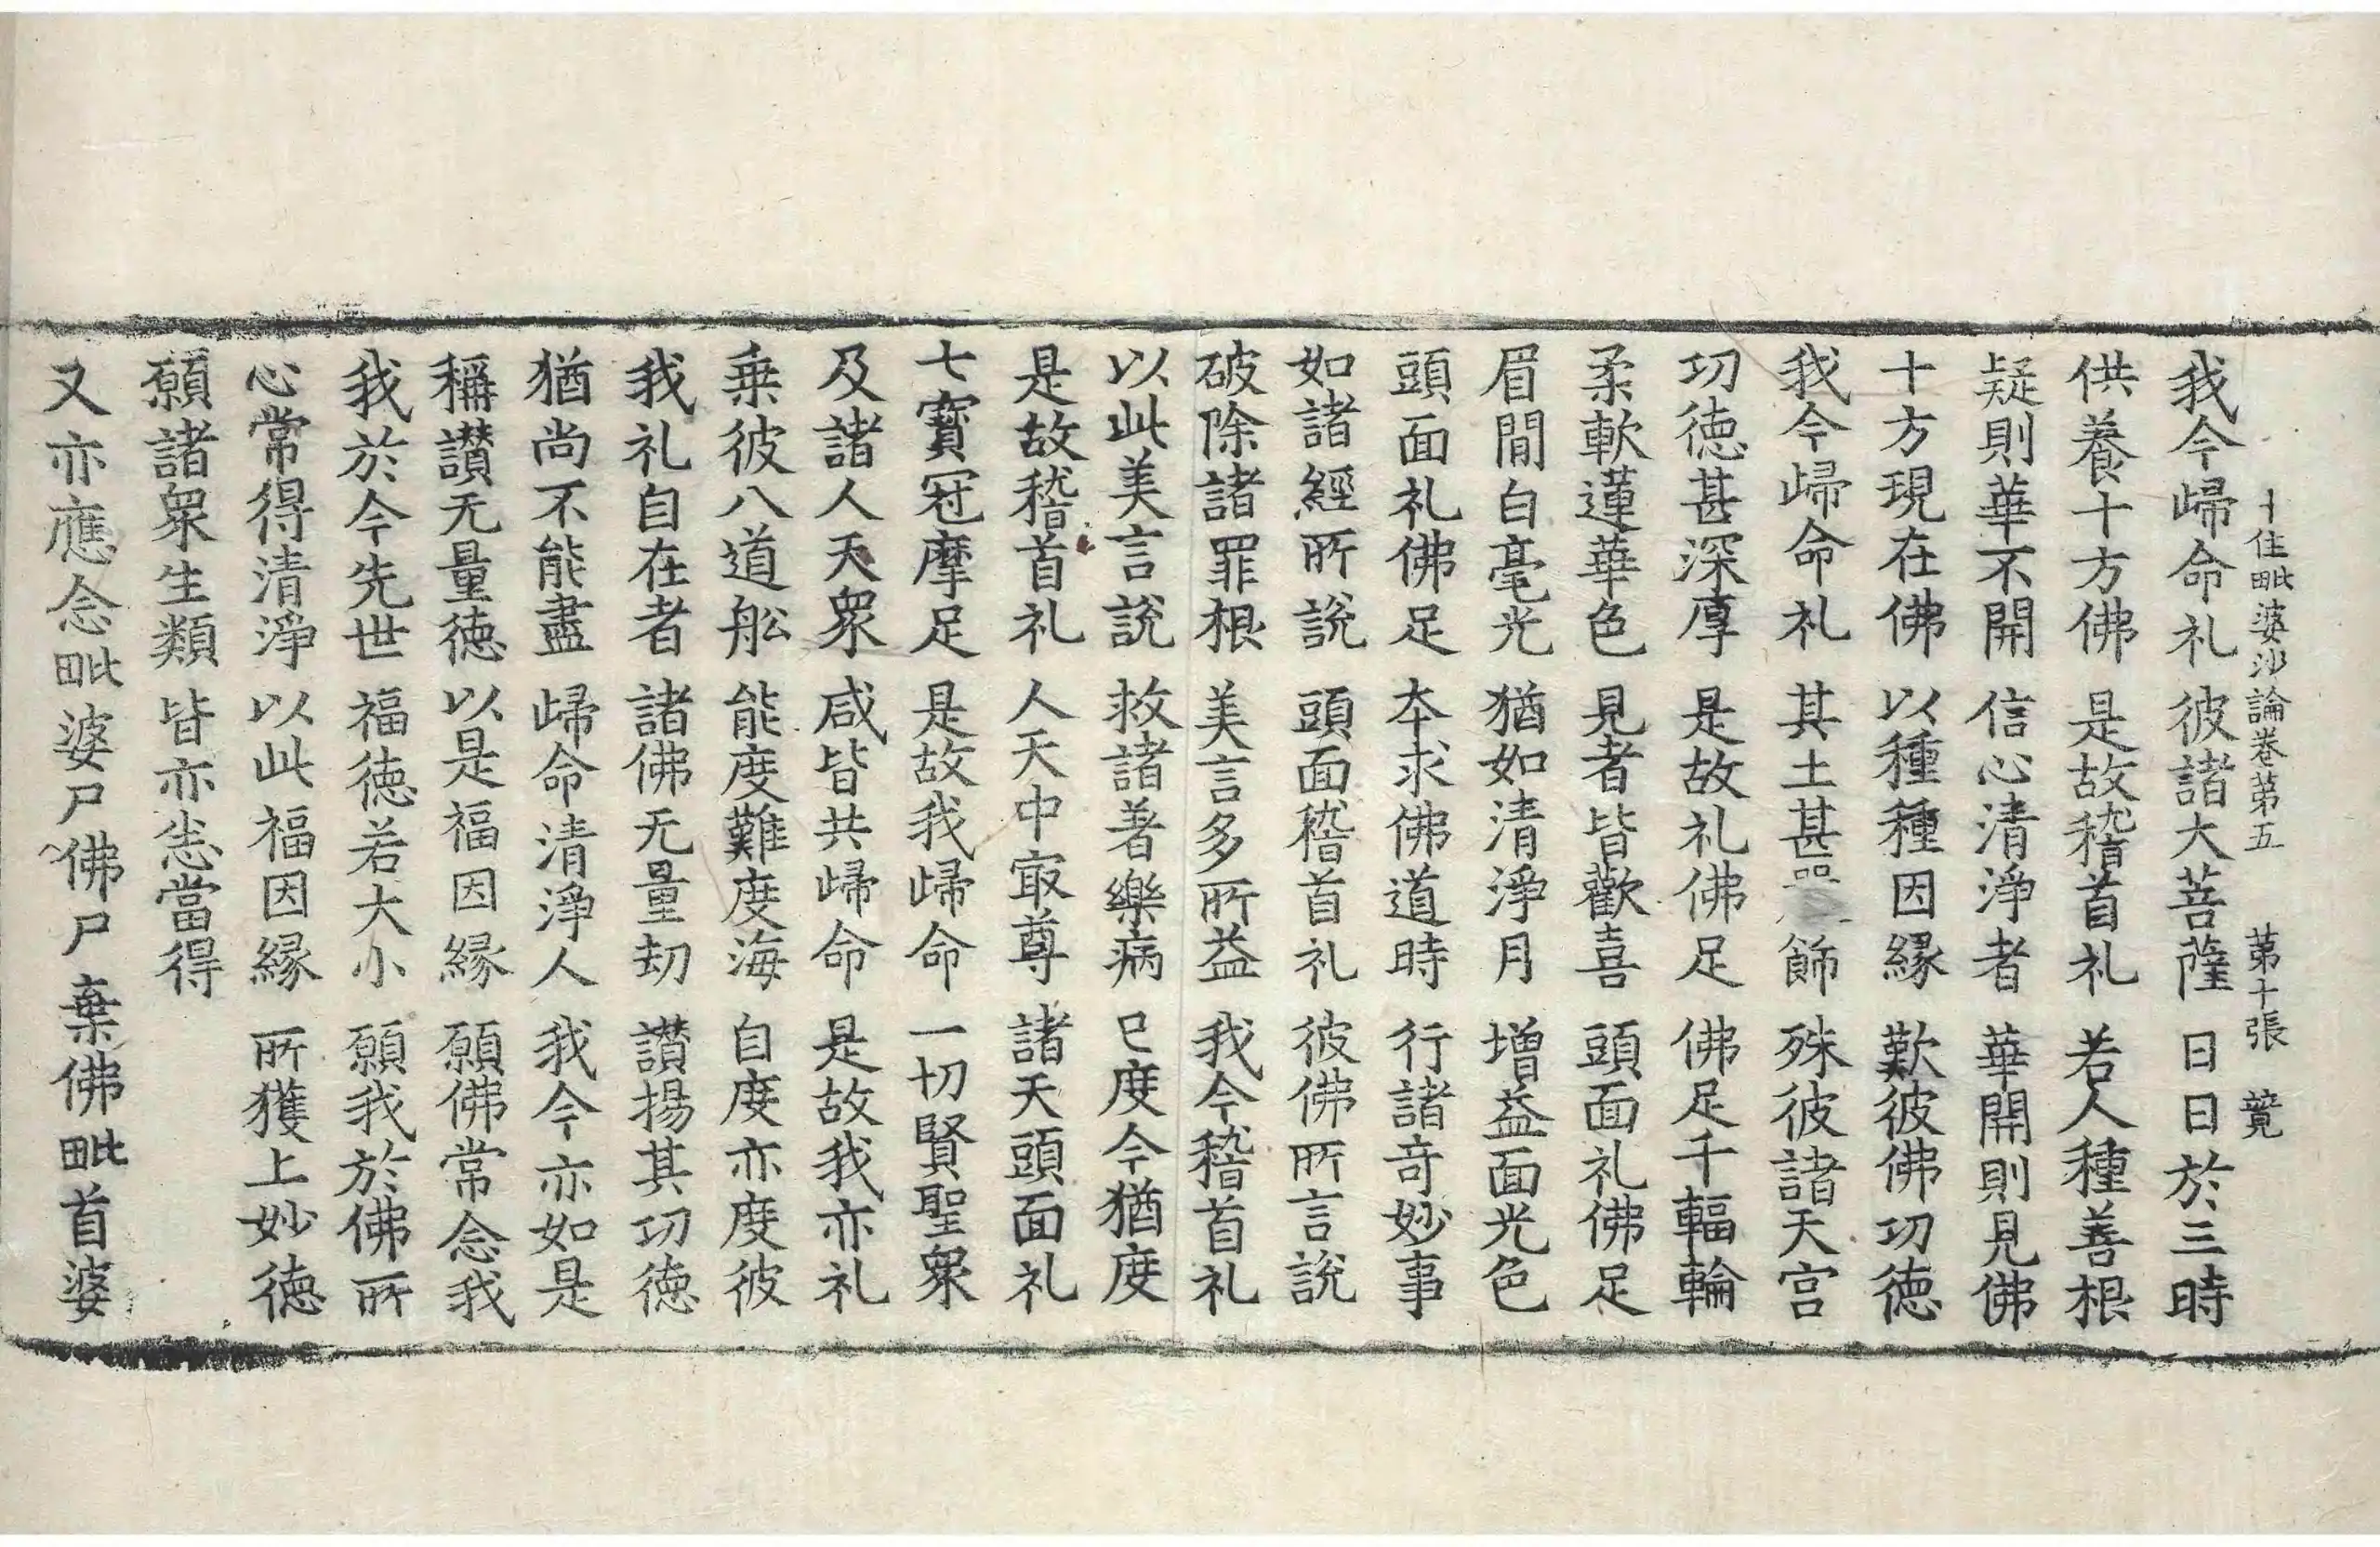 十住毗婆沙論卷第五　第十張　竟
我今歸命礼　彼諸大菩薩　日日於三時
供養十方佛　是故稽首礼　若人種善根
疑則華不開　信心清淨者　華開則見佛
十方現在佛　以種種因縁　歎彼佛功徳
我今歸命礼　其土甚飾　殊彼諸天宫
功徳甚深厚　是故礼佛足　佛足千輻輪
柔軟蓮華色　見者皆歡喜　頭面礼佛足
眉間白毫光　猶如清淨月　增益面光色
頭面礼佛足　本求佛道時　行諸奇妙事
如諸經所說　頭面稽首礼　彼佛所言說
破除諸罪根　美言多所益　我今稽首礼
以此美言說　救諸著樂病　已度今猶度
是故稽首礼　人天中㝡尊　諸天頭面礼
七寶冠摩足　是故我歸命　一切賢聖衆
及諸人天衆　咸皆共歸命　是故我亦礼
乗彼八道舩　能度難度海　自度亦度彼
我礼自在者　諸佛无量劫　讃揚其功徳
猶尚不能盡　歸命清淨人　我今亦如是
稱讃无量徳　以是福因縁　願佛常念我
我於今先世　福徳若大小　願我於佛所
心常得清淨　以此福因縁　所獲上妙徳
願諸衆生類　皆亦悉當得
又亦應念毗婆尸佛尸棄佛毗首婆